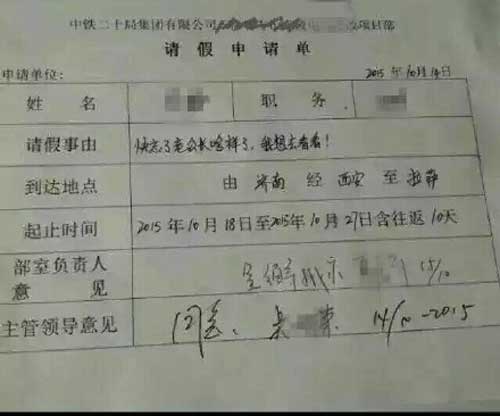 中铁二十局集团有限公司 项目部
请假申请单
申请单位： 2015年10月14日
姓名 职务
请假事由 快忘了老公长啥样了，我想去看看！
到达地点 由 济南 经 西安 至 拉萨
起止时间 2015年10月18日至2015年10月27日含往返10天
部室负责人
意见 15/10
主管领导意见 同意 14/10-2015